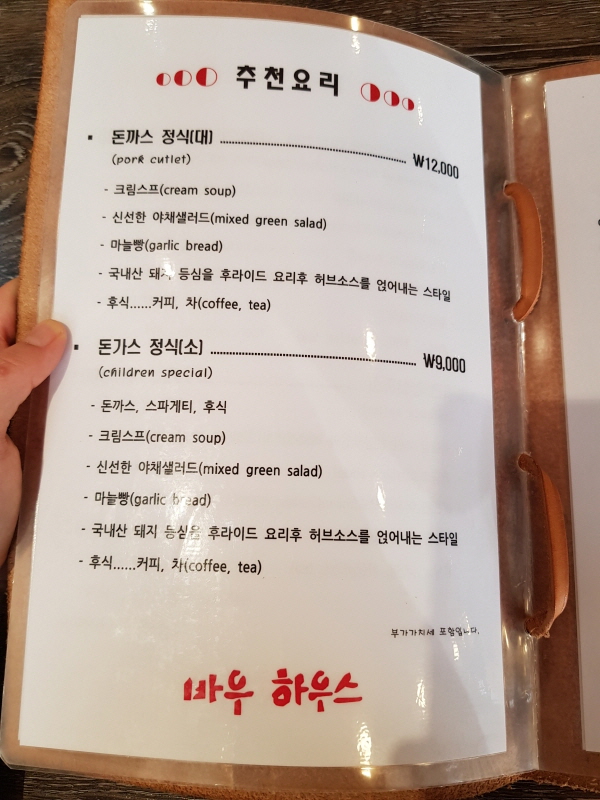 추천요리
▪ 돈까스 정식(대) ₩12,000
(pork cutlet)
- 크림스프(cream soup)
- 신선한 야채샐러드(mixed green salad)
- 마늘빵(garlic bread)
- 국내산 돼지 등심을 후라이드 요리후 허브소스를 얹어내는 스타일
- 후식......커피, 차(coffee, tea)
▪ 돈가스 정식(소) ₩9,000
(children special)
- 돈까스, 스파게티, 후식
- 크림스프(cream soup)
- 신선한 야채샐러드(mixed green salad)
- 마늘빵(garlic bread)
- 국내산 돼지 등심을 후라이드 요리후 허브소스를 얹어내는 스타일
- 후식......커피, 차(coffee, tea)
부가가치세 포함입니다.
바우 하우스